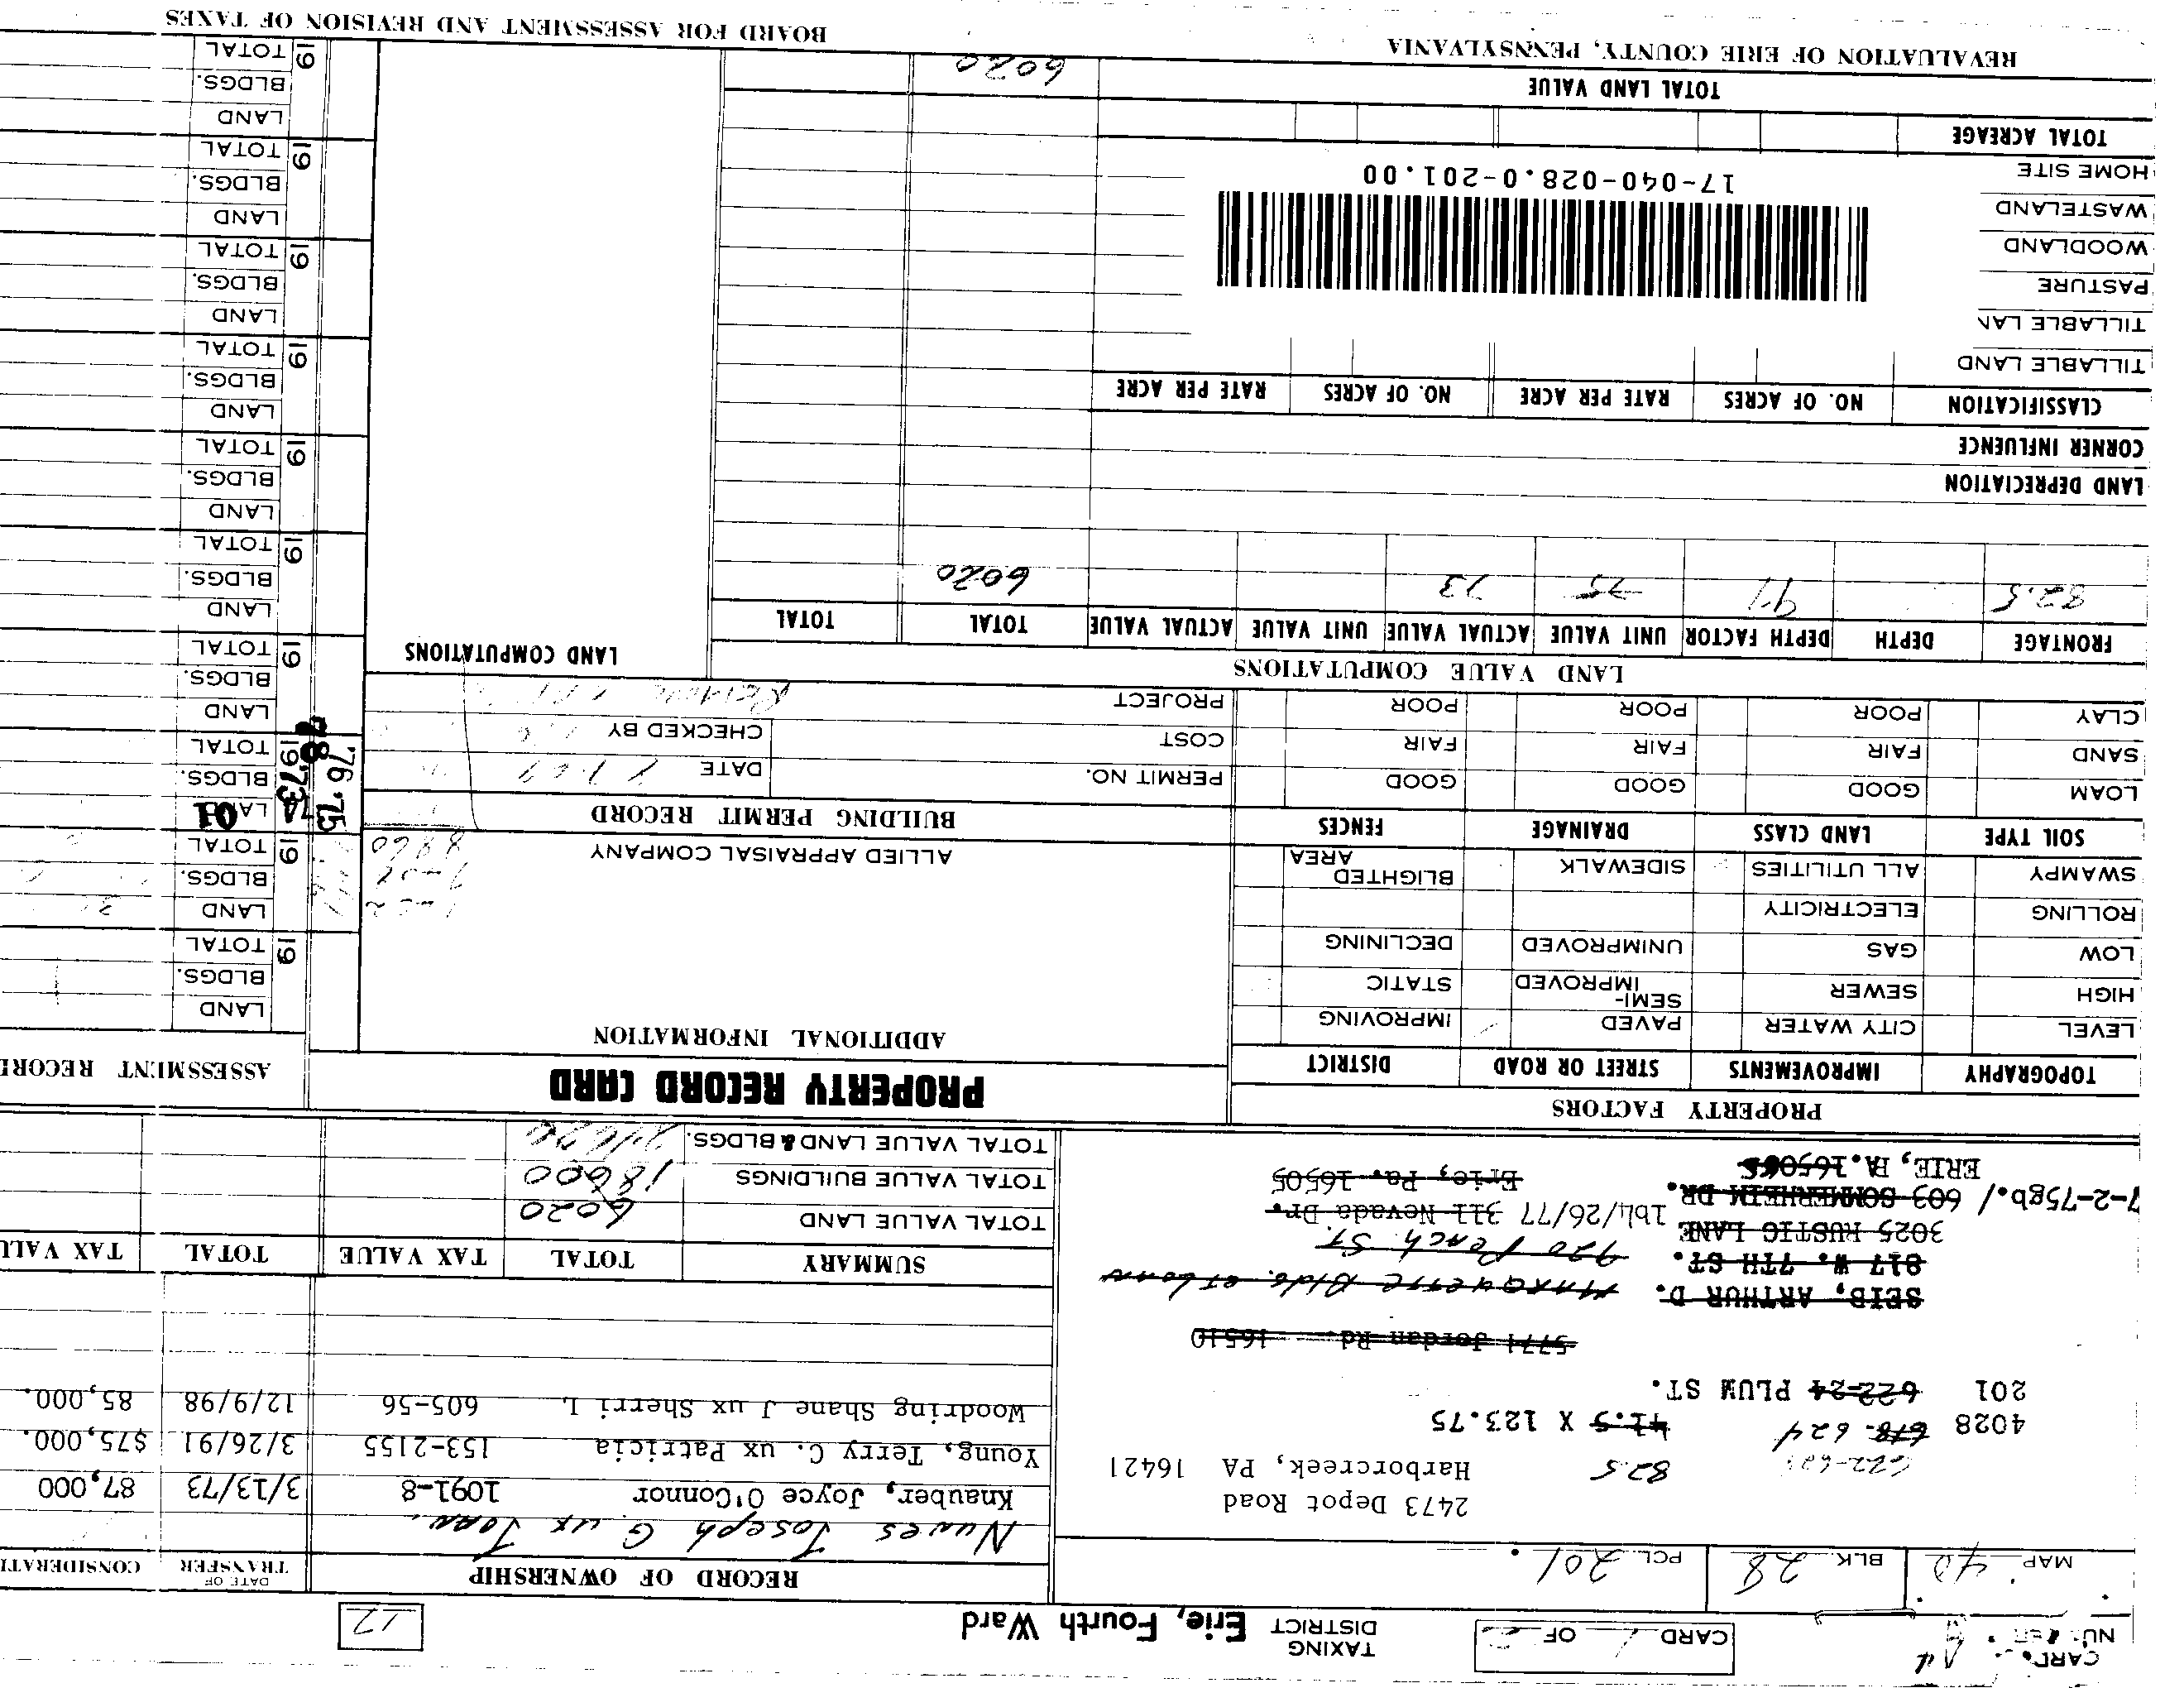 CARD NUMBER
CARD 1 OF 2
TAXING DISTRICT Erie, Fourth Ward
17
MAP 40 BLK. 28 PCL. 201.
2473 Depot Road
622-624 82.5 Harborcreek, PA 16421
4028 618- 624 41.5 X 123.75
201 622-24 PLUM ST.
5771 Jordan Rd. 16510
SEIB, ARTHUR D. Marquette Bldg.
817 W. 7TH ST. 920 Peach St.
3025 RUSTIC LANE lbl4/26/77 311 Nevada Dr.
7-2-75gb./ 603 SOMMERHEIM DR. Erie, Pa. 16505
ERIE, PA. 16506
RECORD OF OWNERSHIP DATE OF TRANSFER CONSIDERATI
Nunes Joseph G. ux Joan.
Knauber, Joyce O'Connor 1091-8 3/13/73 87,000
Young, Terry C. ux Patricia 153-2155 3/26/91 $75,000.
Woodring Shane J ux Sherri L 605-56 12/9/98 85,000.
SUMMARY TOTAL TAX VALUE TOTAL TAX VALU
TOTAL VALUE LAND 6020
TOTAL VALUE BUILDINGS 18600
TOTAL VALUE LAND & BLDGS.
PROPERTY FACTORS
TOPOGRAPHY IMPROVEMENTS STREET OR ROAD DISTRICT
LEVEL CITY WATER PAVED IMPROVING
HIGH SEWER SEMI-IMPROVED STATIC
LOW GAS UNIMPROVED DECLINING
ROLLING ELECTRICITY
SWAMPY ALL UTILITIES SIDEWALK BLIGHTED AREA
SOIL TYPE LAND CLASS DRAINAGE FENCES
LOAM GOOD GOOD GOOD
SAND FAIR FAIR FAIR
CLAY POOR POOR POOR
PROPERTY RECORD CARD
ADDITIONAL INFORMATION
ALLIED APPRAISAL COMPANY
8860
BUILDING PERMIT RECORD
PERMIT NO. DATE
COST CHECKED BY
PROJECT
ASSESSMENT RECORD
19 LAND
BLDGS.
TOTAL
19 LAND
BLDGS.
TOTAL
'76 '75 74 1973 78 LAND 01
BLDGS.
TOTAL
19 LAND
BLDGS.
TOTAL
19 LAND
BLDGS.
TOTAL
19 LAND
BLDGS.
TOTAL
19 LAND
BLDGS.
TOTAL
19 LAND
BLDGS.
TOTAL
19 LAND
BLDGS.
TOTAL
19 LAND
BLDGS.
TOTAL
LAND VALUE COMPUTATIONS
LAND COMPUTATIONS
FRONTAGE DEPTH DEPTH FACTOR UNIT VALUE ACTUAL VALUE UNIT VALUE ACTUAL VALUE TOTAL TOTAL
82.5 97 75 73 6020
LAND DEPRECIATION
CORNER INFLUENCE
CLASSIFICATION NO. OF ACRES RATE PER ACRE NO. OF ACRES RATE PER ACRE
TILLABLE LAND
TILLABLE LAN
PASTURE
WOODLAND
WASTELAND
HOME SITE
17-040-028.0-201.00
TOTAL ACREAGE
TOTAL LAND VALUE 6020
REVALUATION OF ERIE COUNTY, PENNSYLVANIA
BOARD FOR ASSESSMENT AND REVISION OF TAXES